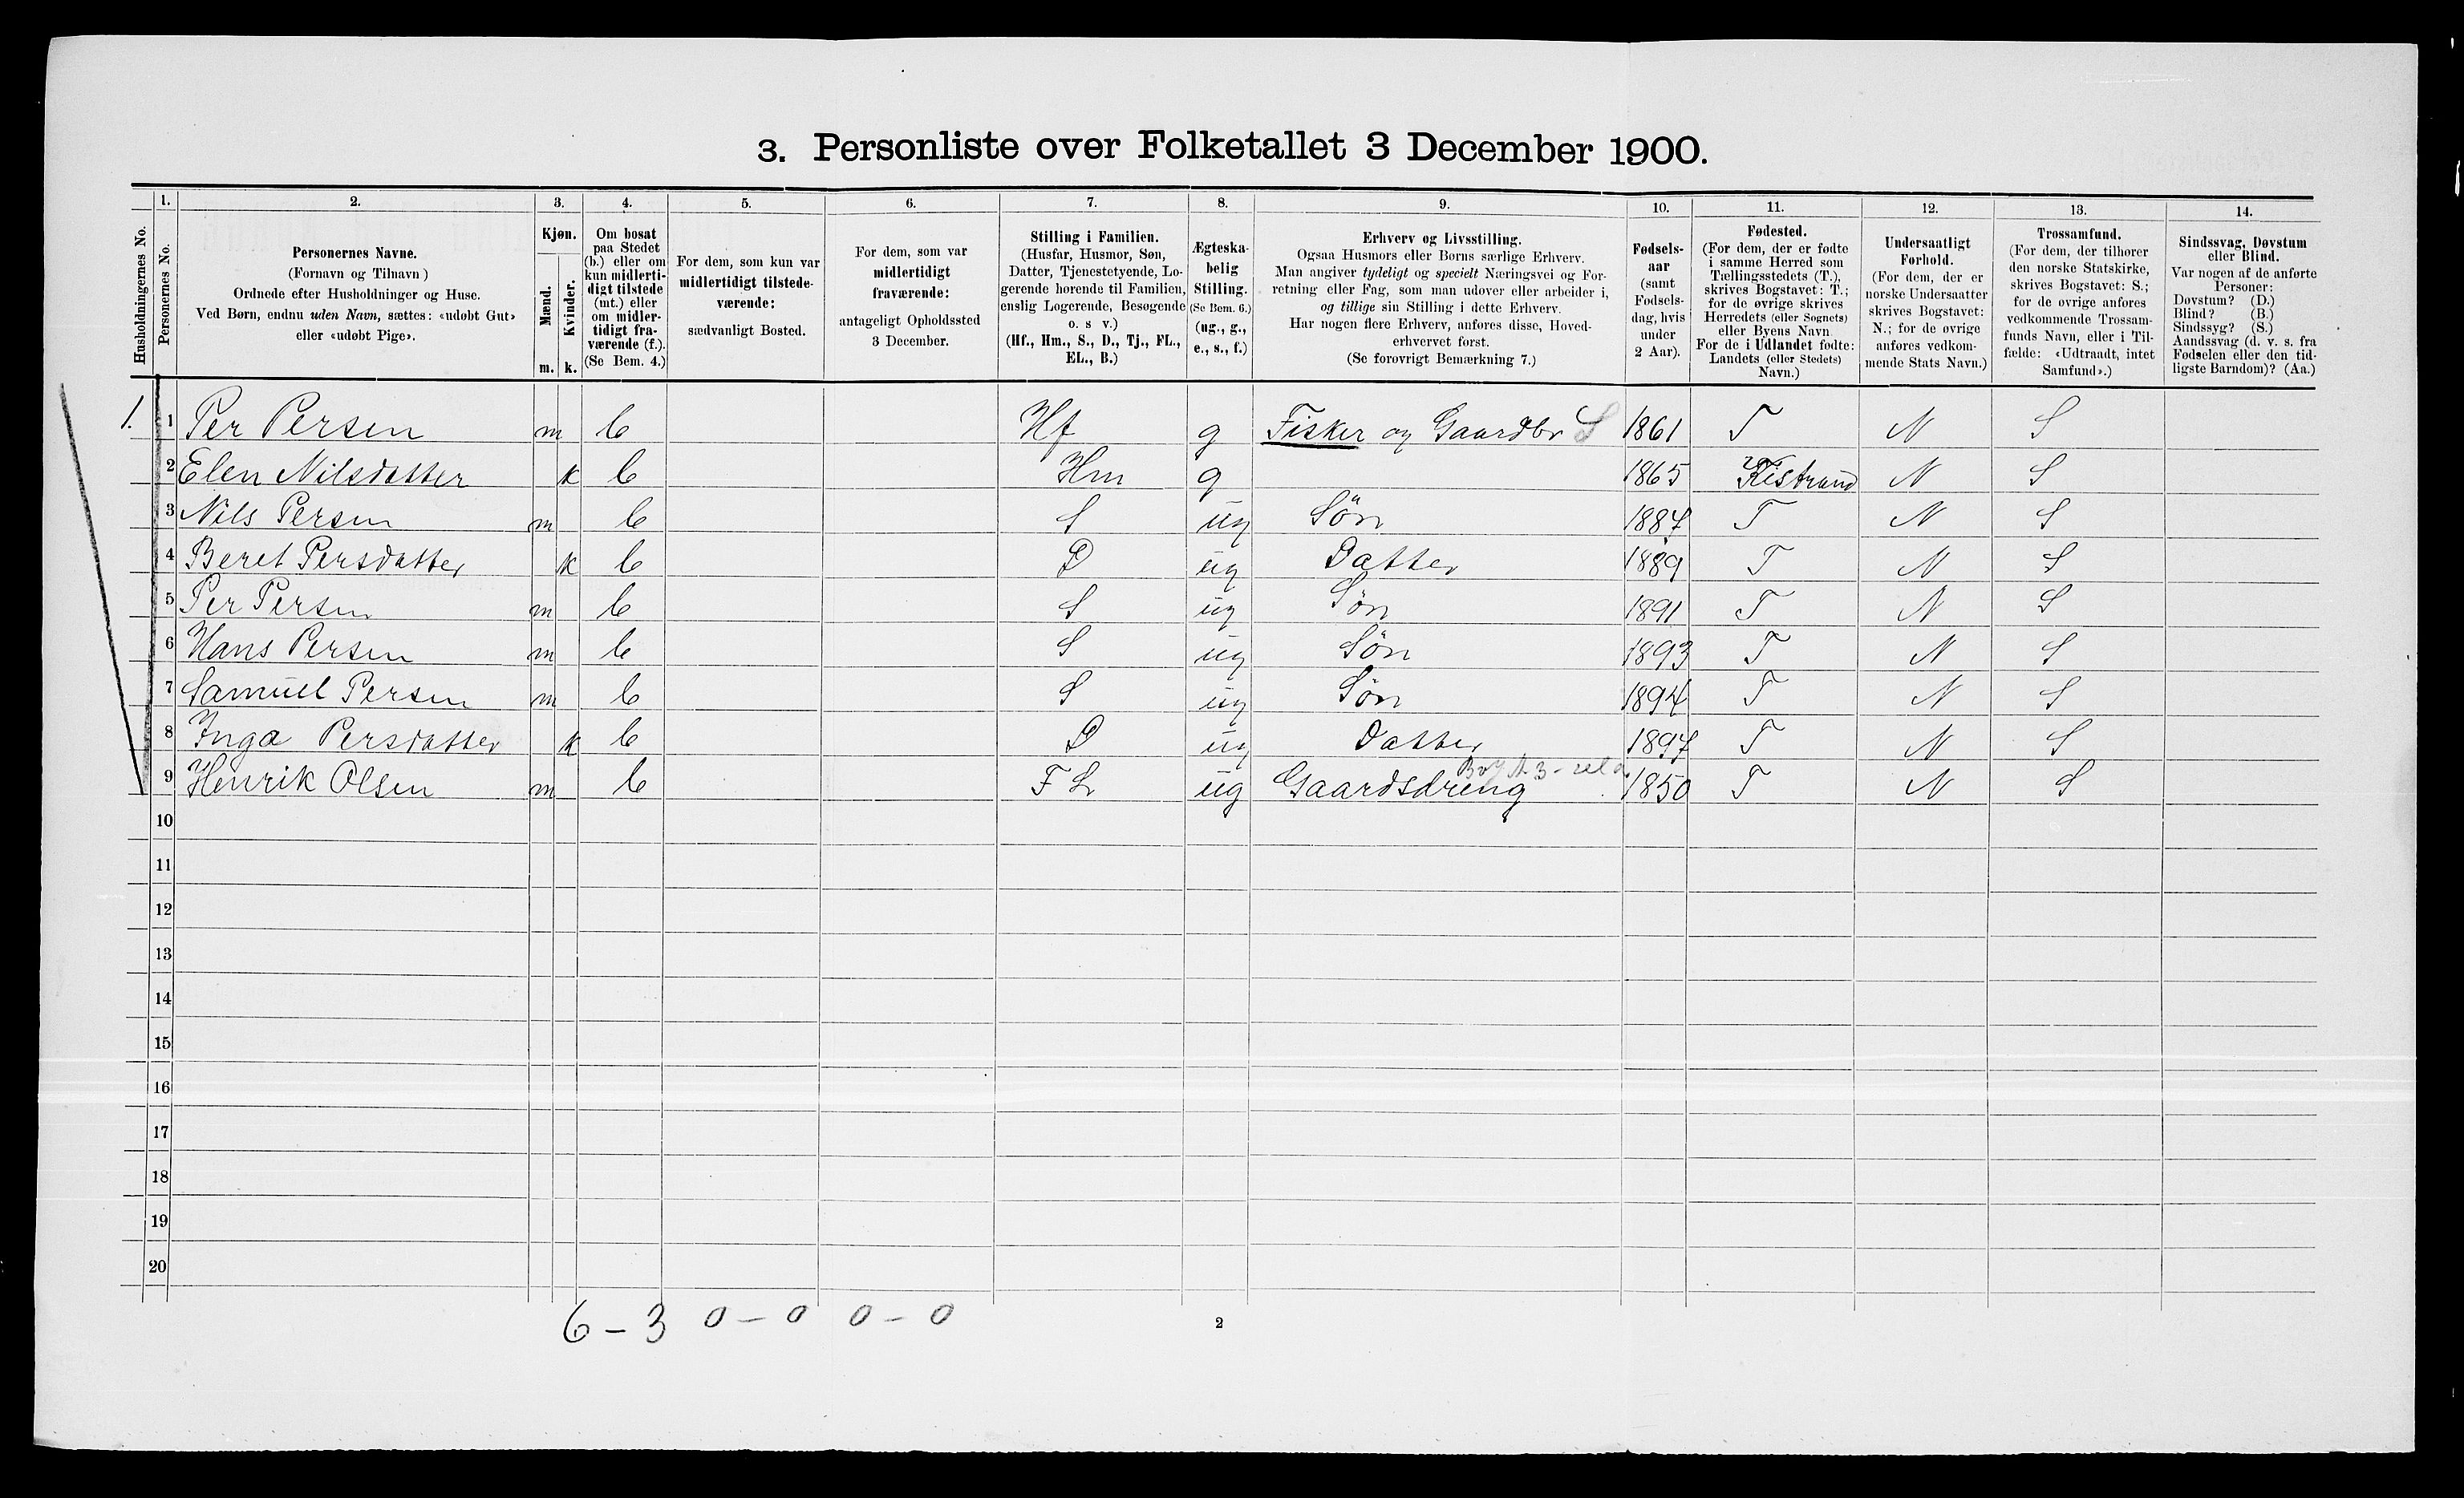 3. Personliste over Folketallet 3 December 1900.
1. 2. 3. 4. 5. 6. 7. 8. 9. 10. 11. 12. 13. 14.
Husholdningernes No.
Personernes No.
Personernes Navne.
(Fornavn og Tilnavn)
Ordnede efter Husholdninger og Huse.
Ved Børn, endnu uden Navn, sættes: «udøbt Gut»
eller «udøbt Pige».
Kjøn.
Mænd.
Kvinder.
m. k.
Om bosat
paa Stedet
(b.) eller om
kun midlerti-
digt tilstede
(mt.) eller
om midler-
tidigt fra-
værende (f.).
(Se Bem. 4.)
For dem, som kun var
midlertidigt tilstede-
værende:
sædvanligt Bosted.
For dem, som var
midlertidigt
fraværende:
antageligt Opholdssted
3 December.
Stilling i Familien.
(Husfar, Husmor, Søn,
Datter, Tjenestetyende, Lo-
gerende hørende til Familien,
enslig Logerende, Besøgende
o. s v.)
(Hf., Hm., S., D., Tj., FL.,
EL., B.)
Ægteska-
belig
Stilling.
(Se Bem. 6.)
(ug., g.,
e., s., f.)
Erhverv og Livsstilling.
Ogsaa Husmors eller Børns særlige Erhverv.
Man angiver tydeligt og specielt Næringsvei og For-
retning eller Fag, som man udøver eller arbeider i,
og tillige sin Stilling i dette Erhverv.
Har nogen flere Erhverv, anføres disse, Hoved-
erhvervet først.
(Se forøvrigt Bemærkning 7.)
Fødsels-
aar
(samt
Fødsels-
dag, hvis
under
2 Aar).
Fødested.
(For dem, der er fødte
i samme Herred som
Tællingsstedets (T.),
skrives Bogstavet: T.;
for de øvrige skrives
Herredets (eller Sognets)
eller Byens Navn.
For de i Udlandet fødte:
Landets (eller Stedets)
Navn.)
Undersaatligt
Forhold.
(For dem, der er
norske Undersaatter
skrives Bogstavet:
N.; for de øvrige
anføres vedkom-
mende Stats Navn.)
Trossamfund.
(For dem, der tilhører
den norske Statskirke,
skrives Bogstavet: S.;
for de øvrige anføres
vedkommende Trossam-
funds Navn, eller i Til-
fælde: «Udtraadt, intet
Samfund».)
Sindssvag, Døvstum
eller Blind.
Var nogen af de anførte
Personer:
Døvstum? (D.)
Blind? (B.)
Sindssyg? (S.)
Aandssvag (d. v. s. fra
Fødselen eller den tid-
ligste Barndom)? (Aa.)
1. 1 Per Persen m b Hf g Fisker og Gaardbr S 1861 T N S
2 Elen Nilsdatter k b Hm g 1865 Kistrand N S
3 Nils Persen m b S ug Sön 1887 T N S
4 Beret Persdatter k b D ug Datter 1889 T N S
5 Per Persen m b S ug Sön 1891 T N S
6 Hans Persen m b S ug Sön 1893 T N S
7 Samuel Persen m b S ug Sön 1894 T N S
8 Inga Persdatter k b D ug Datter 1897 T N S
9 Henrik Olsen m b FL ug Gaardsdreng 1850 T N S
10
11
12
13
14
15
16
17
18
19
20
6 - 3 0 - 0 0 - 0
2